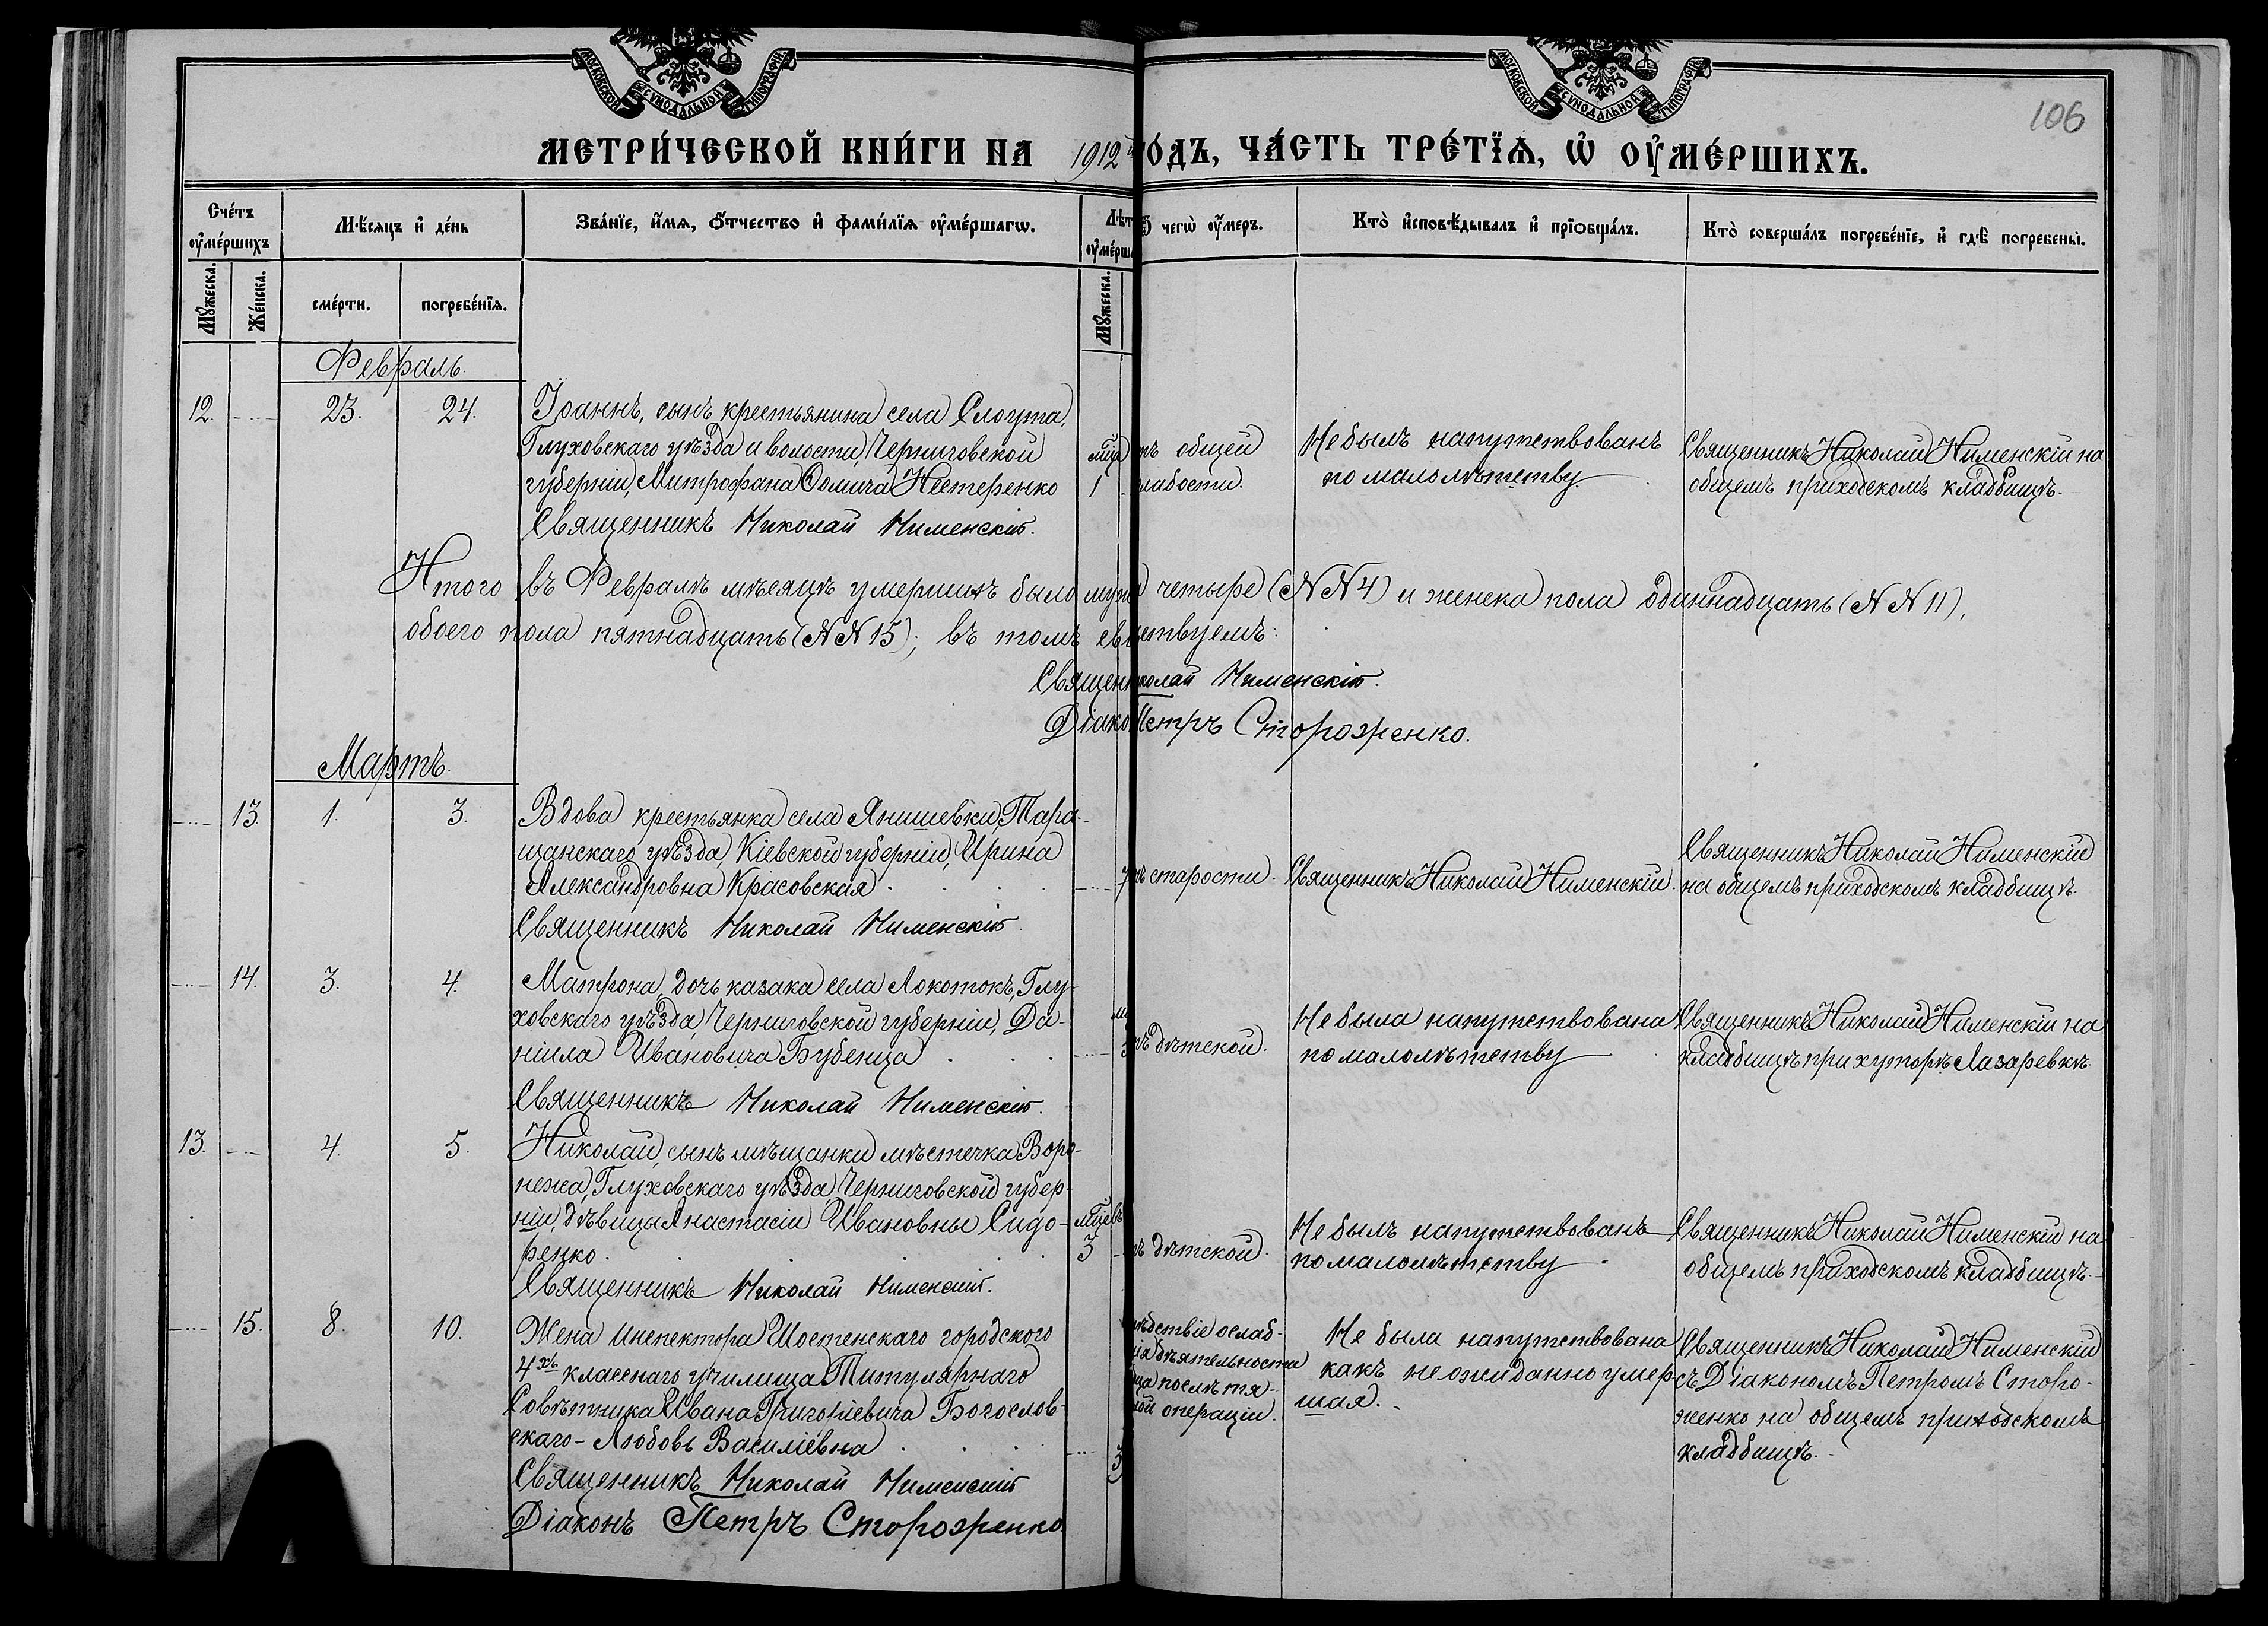 МОСКОВСКОЙ СѴНОДАЛЬНОЙ ТИПОГРАФІИ
МОСКОВСКОЙ СѴНОДАЛЬНОЙ ТИПОГРАФІИ
106
МЕТРИ́ЧЕСКОЙ КНИ́ГИ НА 1912 О́ДЪ, ЧА́СТЬ ТРЕ́ТЇѦ, Ѡ҆ ОУ҆МЕ́РШИХЪ.
Сче́тъ оу҆ме́ршихъ
Мꙋ́жеска.
Же́нска.
Мѣ́сяцъ и҆ де́нь
сме́рти.
погребе́нїѧ.
Зва́нїе, и҆́мѧ, ѻ҆́тчество и҆ фами́лїѧ оу҆ме́ршагѡ.
Лѣт
оу҆ме́рша
Мꙋ́жеска.
Ѿ чегѡ̀ оу҆́меръ.
Кто̀ и҆сповѣ́дывалъ и҆ прїѡбща́лъ.
Кто̀ соверша́лъ погребе́нїе, и҆ гдѣ̀ погребены̀.
Февраль.
12. 23. 24. Іоаннъ, сынъ крестьянина села Слоута,
Глуховскаго уѣзда и волости, Черниговской
губерніи, Митрофана Ѳомича Нестеренко
Священникъ Николай Нименскій.
1
общей
слабости.
Не былъ напутствованъ
по малолѣтству.
Священникъ Николай Нименскій на
общемъ приходскомъ кладбищѣ.
Итого въ Февралѣ мѣсяцѣ умершихъ было муж четыре (№№ 4) и женска пола одиннадцать (№№ 11),
обоего пола пятнадцать (№№ 15); въ томъ свидетвуемъ:
Священ колай Нименскій.
Діако Петръ Стороженко.
Мартъ.
13. 1. 3. Вдова крестьянка села Янишевки, Тара-
щанскаго уѣзда, Кіевской губерніи, Ирина
Александровна Красовская
Священникъ Николай Нименскій.
старости.
Священникъ Николай Нименскій.
Священникъ Николай Нименскій
на общемъ приходскомъ кладбищѣ.
14. 3. 4. Матрона, дочь казака села Локотокъ, Глу-
ховскаго уѣзда, Черниговской губерніи, Да-
ніила Ивановича Бубенца
Священникъ Николай Нименскій.
дѣтской.
Не была напутствована
по малолѣтству
Священникъ Николай Нименскій на
кладбищѣ при хуторѣ Лазаревкѣ.
13. 4. 5. Николай, сынъ мѣщанки мѣстечка Воро-
нежа, Глуховскаго уѣзда, Черниговской губер-
ніи, дѣвицы Анастасіи Ивановны Сидо-
ренко.
Священникъ Николай Нименскій.
3
дѣтской.
Не былъ напутствованъ
по малолѣтству
Священникъ Николай Нименскій на
общемъ приходскомъ кладбищѣ.
15. 8. 10. Жена инспектора Шостенскаго городского
4хъ класснаго училища Титулярнаго
Совѣтника Ивана Григоріевича Богослов-
скаго - Любовь Василіевна
Священникъ Николай Нименскій
Діаконъ Петръ Стороженко
ѣдствіе ослаб-
дѣятельности
послѣ тя-
операціи.
Не была напутствована
какъ неожиданно умер-
шая.
Священникъ Николай Нименскій
съ Діакономъ Петромъ Сторо-
женко на общемъ приходскомъ
кладбищѣ.